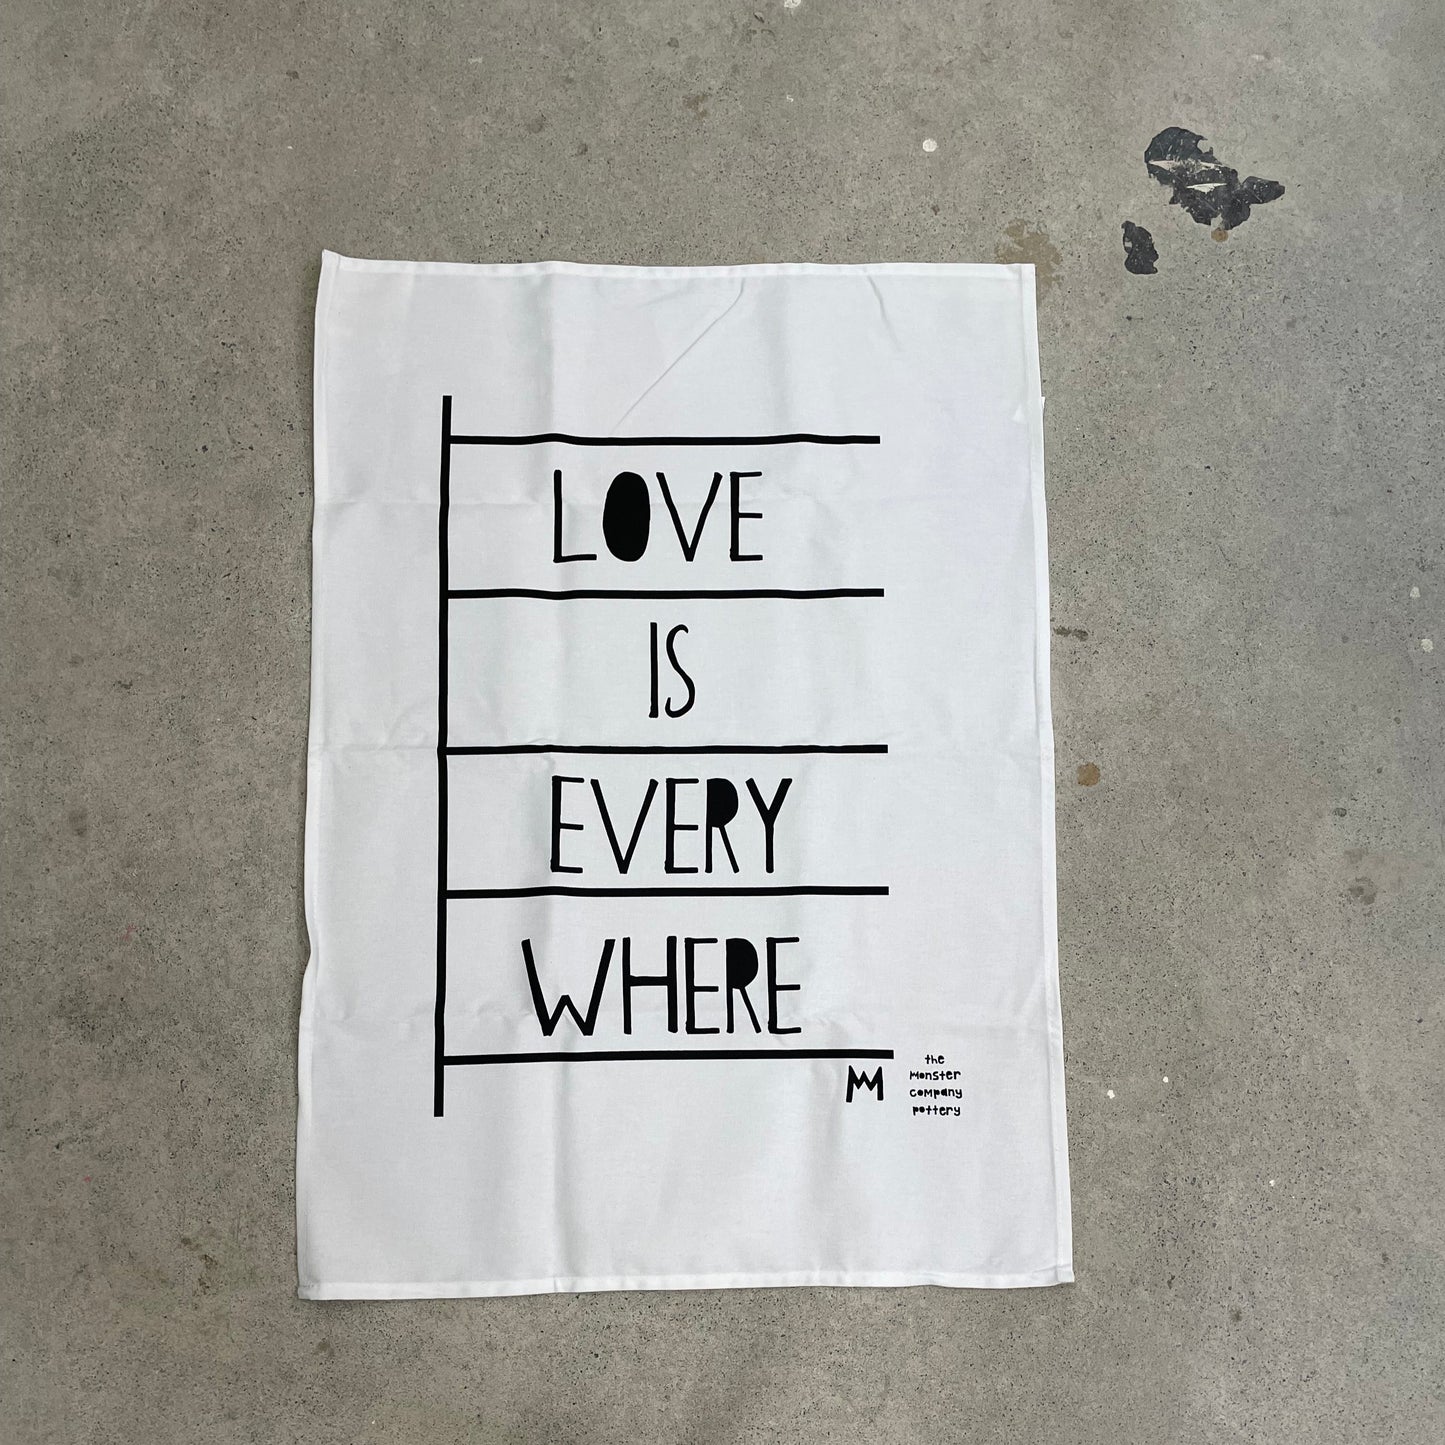 LOVE
IS
EVERY
WHERE
M
the
Monster
company
pottery